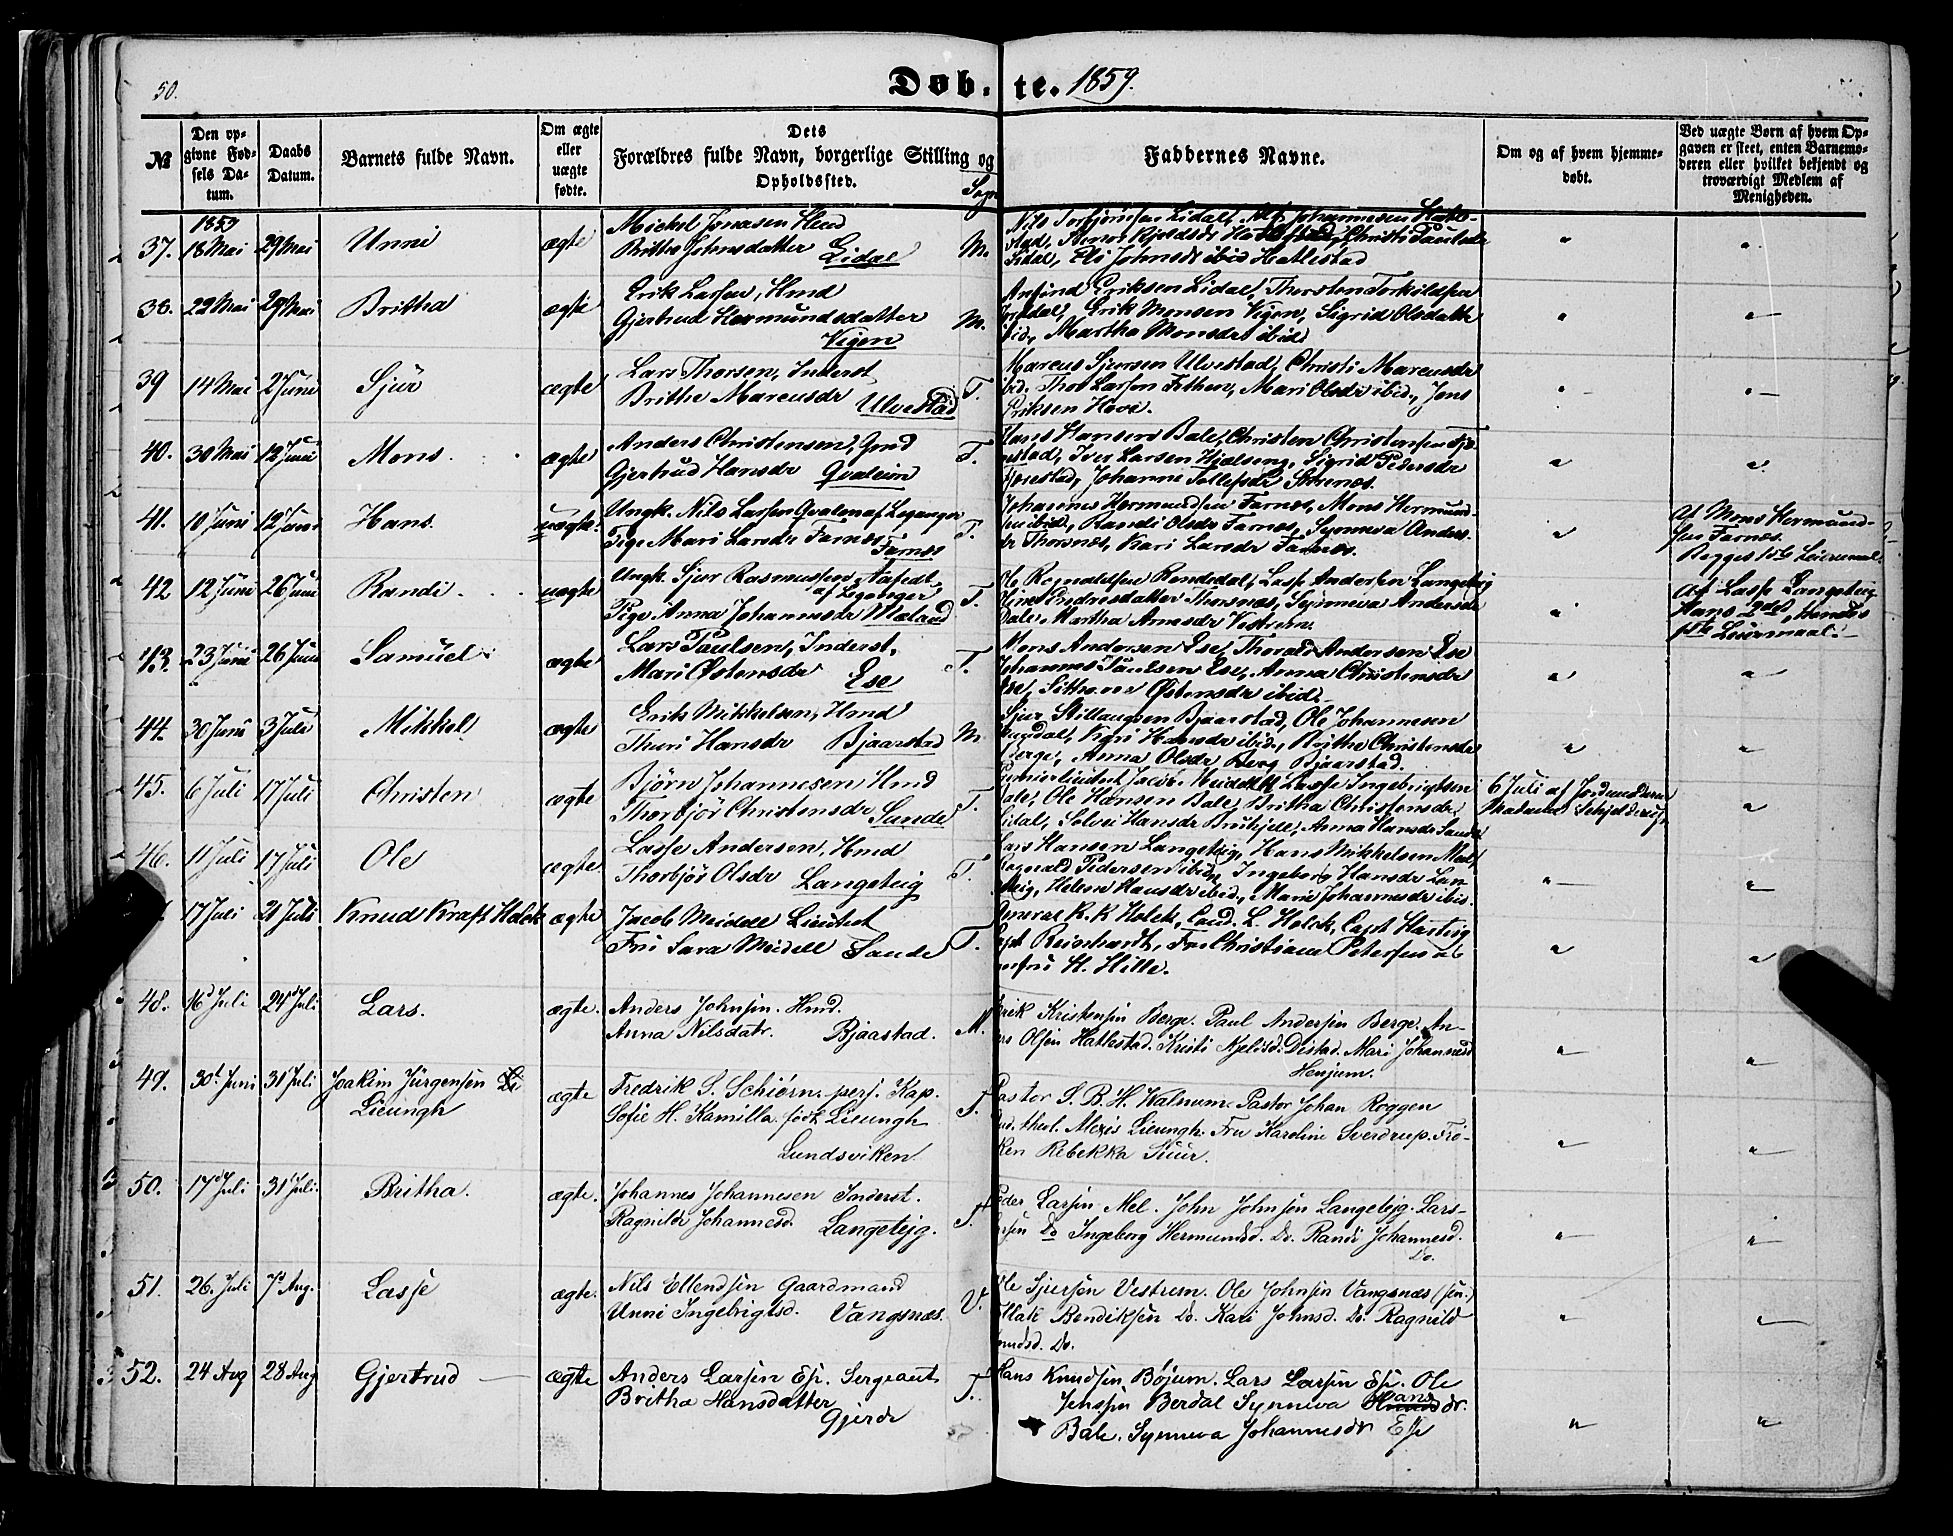 50.
Døb-te. 1859.
№
Den op-
givne Fød-
sels Da-
tum.
Daabs
Datum.
Barnets fulde Navn.
Om ægte
eller
uægte
fødte.
Dets
Forældres fulde Navn, borgerlige Stilling og
Opholdssted.
Sogn
Faddernes Navne.
Om og af hvem hjemme-
døbt.
Ved uægte Børn af hvem Op-
gaven er skeet, enten Barnemo-
deren eller hvilket bekjendt og
troværdigt Medlem af
Menigheden.
1859
37. 18 Mai 29 Mai Unni ægte
Mickel Jonasen Hmd
Britha Johnsdatter Lidal M.
Nils Torbjörnsen Lidal, Johannesen Hatle-
stad, Christi Paulsdr
Lidal, Johnsdr ibid Hatlestad
38. 22 Mai 29 Mai Britha ægte
Erik Larsen, Hmd
Gjertrud Hermundsdatter
Vigen M.
Anfind Eriksen Lidal, Thorsten Torkildsen
Erik Monsen Vigen, Sigrid Olsdatter
ibid, Martha Monsdr ibid
39 14 Mai 2 Juni Sjur ægte
Lars Thorsen, Inderst
Brithe Marcusdr Ulvestad T.
Marcus Sjursen Ulvestad, Christi Marcusdr
ibid. Thor Larsen Fethen, Mari Olsdr ibid., Jens
Eriksen Hove.
40. 30 Mai 12 Juni Mons. ægte
Anders Christensen, Gmd
Gjertrud Hansdr Qvaleim T.
Hans Hansen Bale, Christen Christensen Tjø-
restad, Iver Larsen Hjelseng, Sigrid Pedersdr
Tjørestad, Johanne Tollefsdr
41. 10 Juni 12 Juni Hans. uægte.
Ungk. Nils Larsen Qvalen af Leganger
Pige Mari Larsdr Farnæs
Farnæs T.
Johannes Hermundsen Farnæs, Mons Hermund-
sen ibid, Randi Olsdr Farnæs, Synneva Anders-
dr Thorsnæs, Kari Larsdr Farnæs.
Af Mons Hermund-
sen Farnæs.
Begges 1ste Leiermaal.
42 12 Juni 26 Juni Randi. uægte
Ungk. Sjur Rasmussen
af Leganger
Pige Anna Johannesdr Mæland T.
Ole Rognaldsen Rendedal, Lasse Andersen Langeteig
Endresdatter Thorsnæs, Synneva Andersdr
Bale, Martha Arnesdr Vestrem.
Af Lasse Langeteig
Hans 2det, hendes
1ste Leiermaal.
43. 23 Juni 26 Juni Samuel ægte
Lars Paulsen, Inderst,
Mari Østensdr Ese T.
Mons Andersen Ese, Thorald Andersen Ese
Johannes Paulsen Ese, Anna Christensdr
Ese, Østensdr ibid.
44. 30 Juni 3 Juli Mikkel ægte
Erik Mikkelsen, Hmd
Thuri Hansdr Bjaarstad M.
Sjur Stillaugsen Bjaarstad, Ole Johannesen
Kari Hansdr ibid, Brithe Christensdr
Berge, Anna Olsdr Berg Bjaarstad.
45. 6 Juli 17 Juli Christen ægte
Björn Johannesen Hmd
Thorbjör Christensdr Sande T.
Premierlieutent Jacob Meidell Lasse Ingebrigtsen
Bale, Ole Hansen Bale, Britha Christensdr
Lidal, Solvei Hansdr Anna Hansdr Sande
6 Juli af Jordemoderen
Madame Schjelderup.
46. 11 Juli 17 Juli Ole ægte
Lasse Andersen, Hmd
Thorbjör Olsdr Langeteig T.
Lars Hansen Langeteig, Hans Mikkelsen Mel,
Rognald Pedersen ibid, Ingeborg Hansdr Lan-
geteig, Helene Hansdr ibid., Marie Johannesdr ibid.
17 Juli 21 Juli Knud Kraft Holck ægte
Jacob Meidell Lieutent
Fru Sara Meidell Sande T.
General K. K Holck, Cand. L. Holck, Capt Hastvig
Capt Reinhardt, Fru Christiana Petersen og
H. Hille.
48. 16d Juli 24d Juli. Lars. ægte.
Anders Johnsen. Hmd.
Anna Nilsdatr. Bjaastad. M.
Erik Kristensen Berge. Paul Andersen Berge. An-
ders Olsen Hatlestad. Kristi Kjelsd. Distad. Mari Johannesd
Henjum.
49. 30t Juni 31 Juli Joakim Jürgensen
Lieungh ægte
Fredrik S. Schiörn, pers. Kap.
Sofie H. Kamilla. født Lieungh
Lundsviken. T.
Pastor S. B. H. Walnum. Pastor Johan Roggen
Stud. theol. Alexis Lieungh. Fru Karoline Sverdrup. Frø-
ken Rebekka Suur.
50. 17d Juli 31 Juli. Britha. ægte.
Johannes Johannesen Inderst.
Ragnilde Johannesd. Langetejg. T.
Peder Larsen Mel. John Johnsen Langetejg. Lars-
Do Ingeborg Hermundsd. Do. Randi Johannesd.
Do.
51. 26. Juli 7d Aug. Lasse ægte.
Nils Ellendsen Gaardmand
Unni Ingebrigtsd. Vangsnæs. V.
Ole Sjursen Vestrem. Ole Johnsen Vangsnæs (sen.)
Bendiksen Do. Kari Johnsd. Do. Ragnild
Do.
52. 24 Aug 28 Aug Gjertrud ægte
Anders Larsen Ese. Sergeant
Britha Hansdatter
Gjerde T.
Hans Knudsen Bøjum. Lars Larsen Ese. Ole
Jensen Berdal Synneva Hansdr.
Bale. Synneva Johannesdr Ese